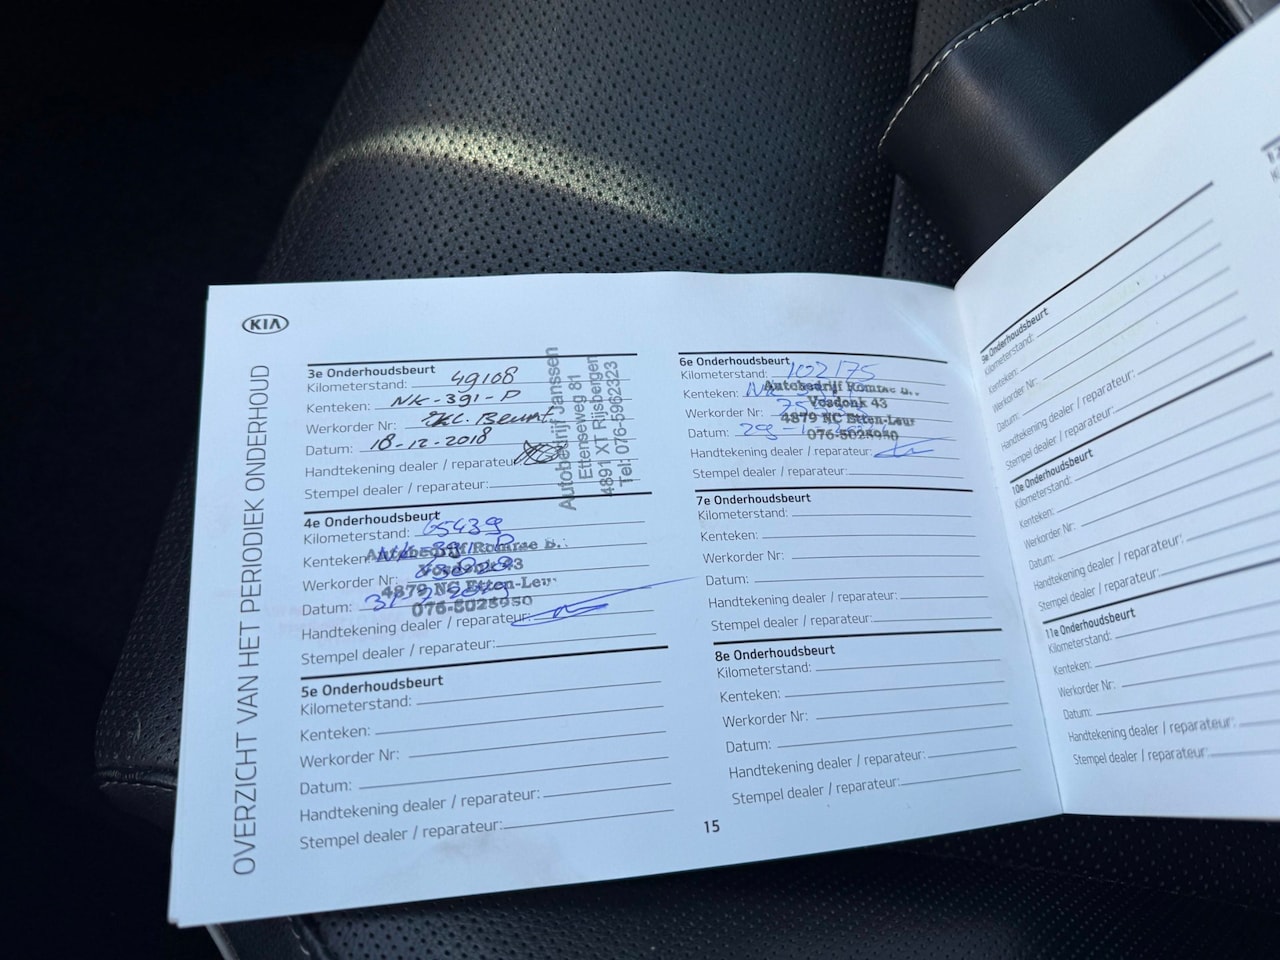 KIA
OVERZICHT VAN HET PERIODIEK ONDERHOUD
3e Onderhoudsbeurt
Kilometerstand: 49108
Kenteken: NK-391-P
Werkorder Nr: Beurt
Datum: 18-12-2018
Handtekening dealer / reparateur:
Stempel dealer / reparateur:
Autobedrijf Janssen
Ettenseweg 81
4891 XT Rijsbergen
Tel: 076-5962323
4e Onderhoudsbeurt
Kilometerstand: 65439
Kenteken: NK-391-P
Werkorder Nr:
Datum:
Handtekening dealer / reparateur:
Stempel dealer / reparateur:
Autobedrijf Romme B.
Vosdonk 43
4879 NC Etten-Leur
076-5025950
5e Onderhoudsbeurt
Kilometerstand:
Kenteken:
Werkorder Nr:
Datum:
Handtekening dealer / reparateur:
Stempel dealer / reparateur:
6e Onderhoudsbeurt
Kilometerstand: 102175
Kenteken:
Werkorder Nr:
Datum:
Handtekening dealer / reparateur:
Stempel dealer / reparateur:
Autobedrijf Romme B.
Vosdonk 43
4879 NC Etten-Leur
076-5025950
7e Onderhoudsbeurt
Kilometerstand:
Kenteken:
Werkorder Nr:
Datum:
Handtekening dealer / reparateur:
Stempel dealer / reparateur:
8e Onderhoudsbeurt
Kilometerstand:
Kenteken:
Werkorder Nr:
Datum:
Handtekening dealer / reparateur:
Stempel dealer / reparateur:
15
9e Onderhoudsbeurt
Kilometerstand:
Kenteken:
Werkorder Nr:
Datum:
Handtekening dealer / reparateur:
Stempel dealer / reparateur:
10e Onderhoudsbeurt
Kilometerstand:
Kenteken:
Werkorder Nr:
Datum:
Handtekening dealer / reparateur:
Stempel dealer / reparateur:
11e Onderhoudsbeurt
Kilometerstand:
Kenteken:
Werkorder Nr:
Datum:
Handtekening dealer / reparateur:
Stempel dealer / reparateur: